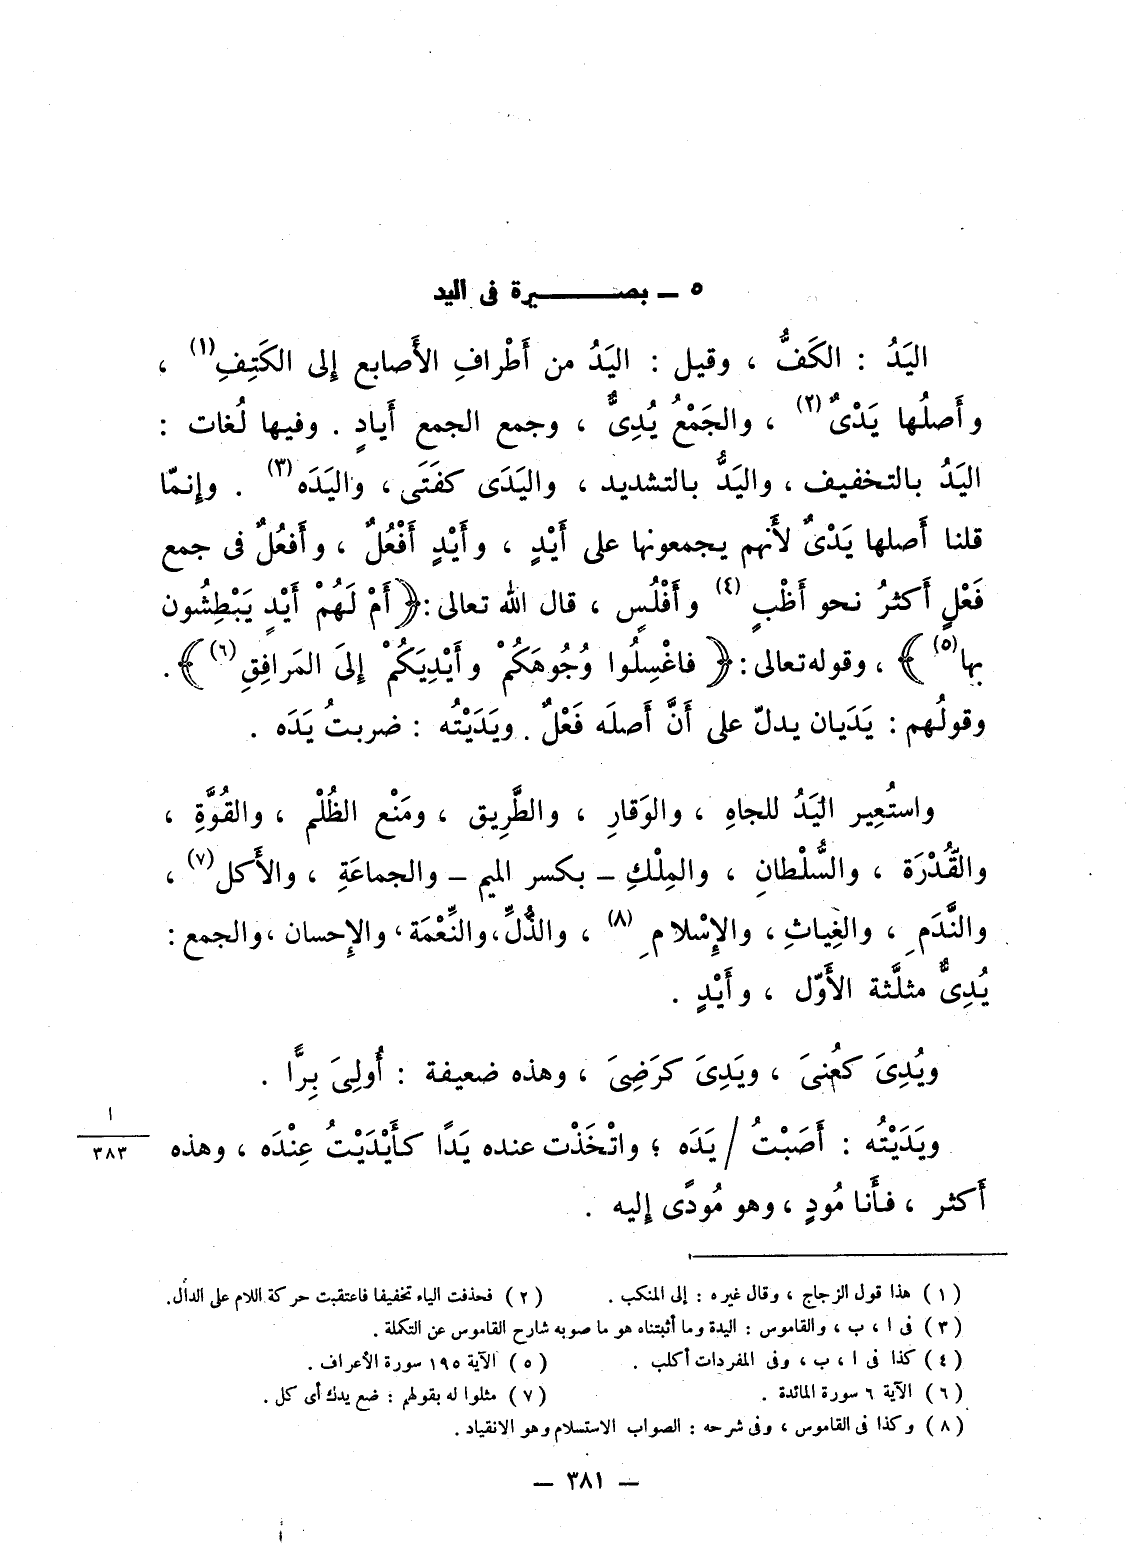 ٥ ــ بصـــــــيرة فى اليد
اليَدُ : الكَفُّ ، وقيل : اليَدُ من أَطْرافِ الأَصابع إِلى الكَتِفِ(١) ،
وأَصلُها يَدْىٌ(٢) ، والجَمْعُ يُدِىٌّ ، وجمع الجمع أَيادٍ . وفيها لُغات :
اليَدُ بالتخفيف ، واليَدُّ بالتشديد ، واليَدَى كفَتَى ، واليَدَه(٣) . وإِنمّا
قلنا أَصلها يَدْىٌ لأَنهم يجمعونها على أَيْدٍ ، وأَيْدٍ أَفْعُلٌ ، وأَفعُلٌ فى جمع
فَعْلٍ أَكثرُ نحو أَظْبٍ(٤) وأَفْلُسٍ ، قال الله تعالى : ﴿ أَمْ لَهُمْ أَيْدٍ يَبْطِشُون
بها(٥) ﴾ ، وقوله تعالى : ﴿ فاغْسِلُوا وُجُوهَكُمْ وأَيْدِيَكُمْ إِلىَ المَرافِقِ(٦) ﴾ .
وقولُهم : يَدَيان يدلّ على أَنَّ أَصلَه فَعْلٌ . ويَدَيْتُه : ضربتُ يَدَه .
واستُعِير اليَدُ للجاهِ ، والوَقارِ ، والطَّرِيق ، ومَنْع الظُلْم ، والقُوَّةِ ،
والقُدْرَة ، والسُّلْطانِ ، والمِلْكِ ــ بكسر الميم ــ والجماعَةِ ، والأَكل(٧) ،
والنَّدَمِ ، والغِياثِ ، والإِسْلامِ(٨) ، والذُّلِّ ، والنِّعْمَة ، والإِحسان ، والجمع :
يُدِىٌّ مثلَّثة الأَوّل ، وأَيْدٍ .
ويُدِىَ كعُنىَ ، ويَدِىَ كرَضِىَ ، وهذه ضعيفة : أُولِىَ بِرًّا .
ويَدَيْتُه : أَصَبْتُ / يَدَه ؛ واتْخَذْت عنده يَدًا كأَيْدَيْتُ عِنْدَه ، وهذه
ا
٣٨٣
أَكثر ، فأَنا مُودٍ ، وهو مُودًى إِليه .
(١) هذا قول الزجاج ، وقال غيره : إلى المنكب .
(٢) فحذفت الياء تخفيفا فاعتقبت حركة اللام على الدال.
(٣) فى ا ، ب ، والقاموس : اليدة وما أثبتناه هو ما صوبه شارح القاموس عن التكملة .
(٤) كذا فى ا ، ب ، وفى المفردات أكلب .
(٥) الآية ١٩٥ سورة الأعراف .
(٦) الآية ٦ سورة المائدة .
(٧) مثلوا له بقولهم : ضع يدك أى كل .
(٨) وكذا فى القاموس ، وفى شرحه : الصواب الاستسلام وهو الانقياد .
ــ ٣٨١ ــ
أ